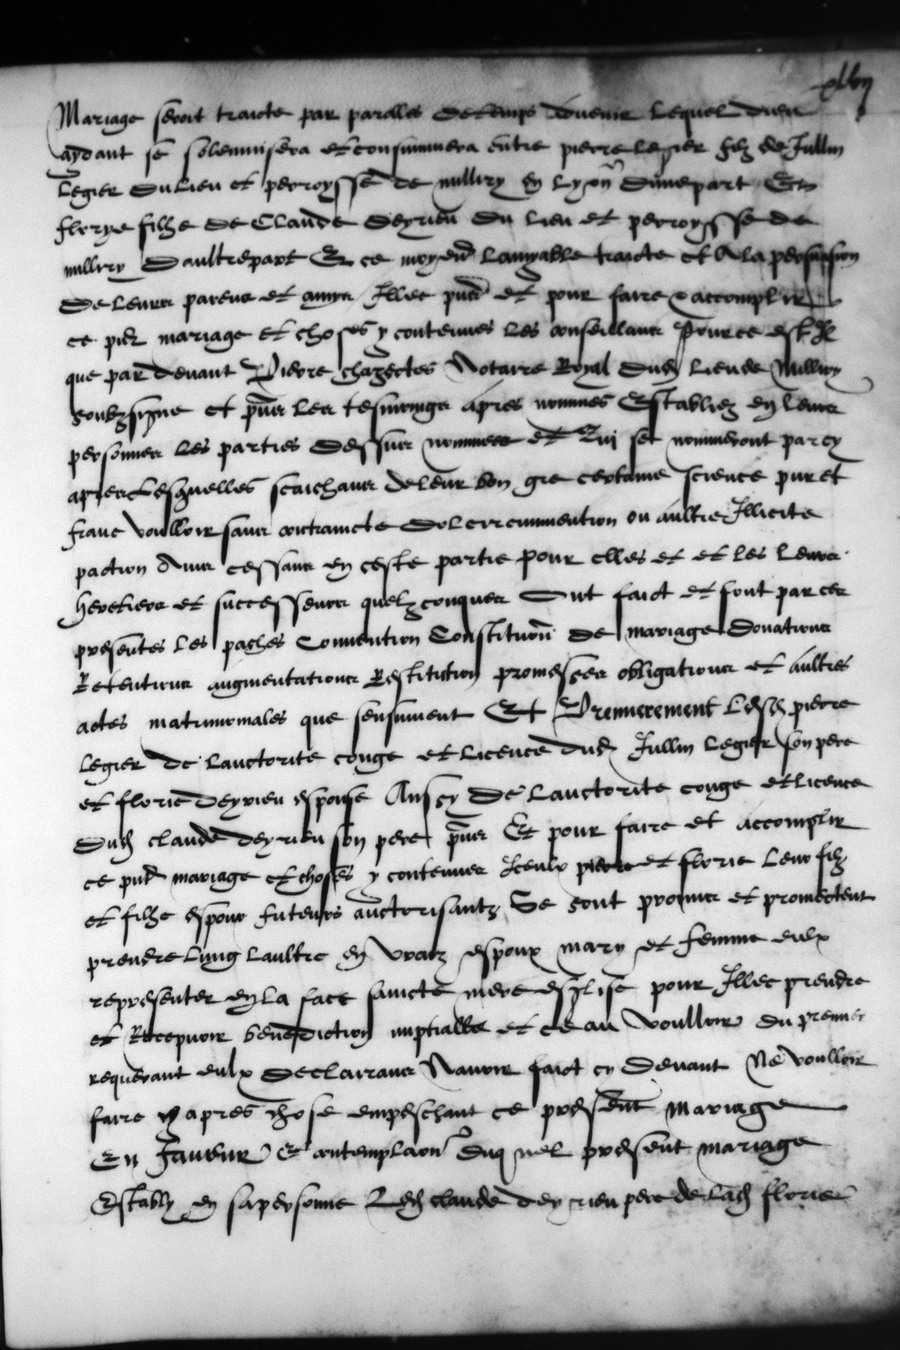 Mariage seroit traicte par parolles de temps advenir lequel dieu
aydant se solempnisera et consummera entre pierre legier filz de Jullin
legier du lieu et perroysse de millery en lyon d'unepart Et
florye filhe de Claude deyrieu du lieu et perroysse de
millery daultrepart Et ce moyen lamyable traicte et A la persuasion
de leurs parens et amys Illec pnts et pour faire et accomplir
ce pnt mariage et choses y contenues les conseillans Pource est Il
que par devant Pierre Notaire Royal dud lieu de Millery
soubzsigne et pns les tesmoings apres nommes Establiez en leurs
personnes les parties dessus nommees et Qui se nommeront par cy
apres Lesquelles scaichans de leur bon gre certaine science pur et
franc voulloir sans contraincte dol circumvention ou aultre Illicite
paction Ains cessans en ceste partie pour elles et et les leurs
heretiers et successeurs quelzconques Ont faict et font par ces
presentes les paches Convention Constitution de mariage donations
Retentions augmentations Restitution promesses obligations et aultres
actes matrimoniales que sensuivent Et Premierement Led pierre
legier de lauctorite conge et licence dud Jullin legier son pere
et florie deyrieu espouse Aussy de lauctorite conge et licence
Dud claude deyrieu son pere pns Et pour faire et accomplir
ce pnt mariage et choses y contenues Iceulx pierre et florie leur filz
et filhe espoux futeurs auctorisantz Se sont promis et promectent
prendre lung laultre en vraiz espoux mary et femme eulx
representer en la face saincte mere esglise pour Illec prendre
et Recepvoir benediction nuptialle et ce au voulloir du premier
requerant eulx declairans Navoir faict cy devant Ne voulloir
faire cy apres chose empeschant ce present mariage
En faveur Et contemplaon duquel present mariage
Estably en sa personne Led claude deyrieu pere de lad florie